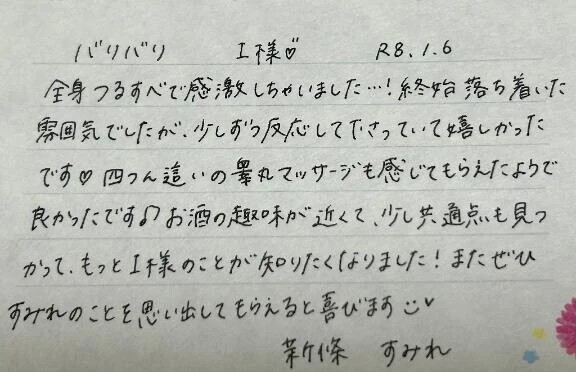 バリバリ I様♡ R8.1.6
全身つるすべで感激しちゃいました…!終始落ち着いた
雰囲気でしたが、少しずつ反応して下さっていて嬉しかった
です♡四つん這いの睾丸マッサージも感じてもらえたようで
良かったです♪お酒の趣味が近くて、少し共通点も見つ
かって、もっとI様のことが知りたくなりました!またぜひ
すみれのことを思い出してもらえると喜びます☺♡
新條 すみれ